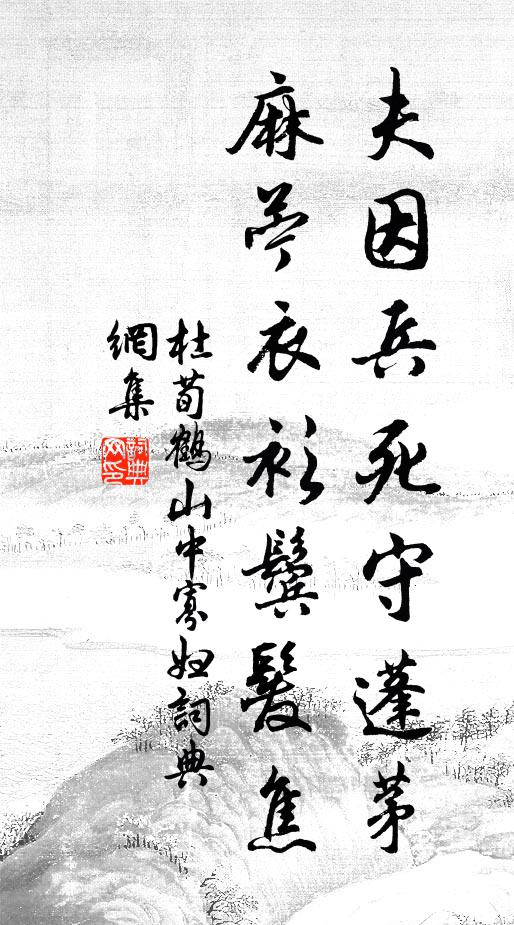 夫因兵死守蓬茅
麻苧衣衫鬢髮焦
杜荀鶴山中寡婦詞典
網集